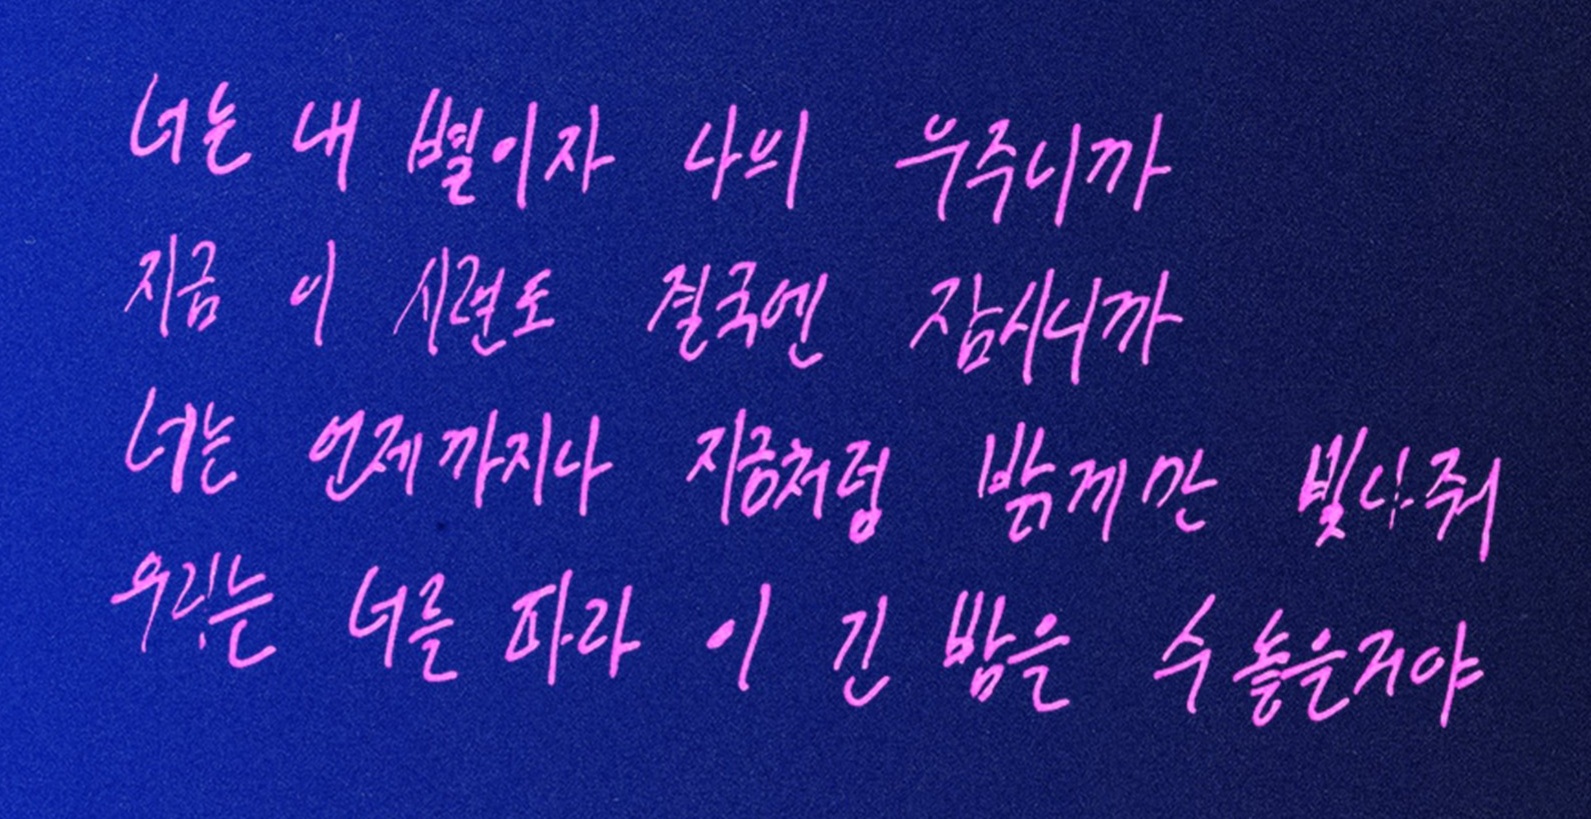 너는 내 별이자 나의 우주니까
지금 이 시련도 결국엔 잠시니까
너는 언제까지나 지금처럼 밝게만 빛나줘
우리는 너를 따라 이 긴 밤을 수놓을거야